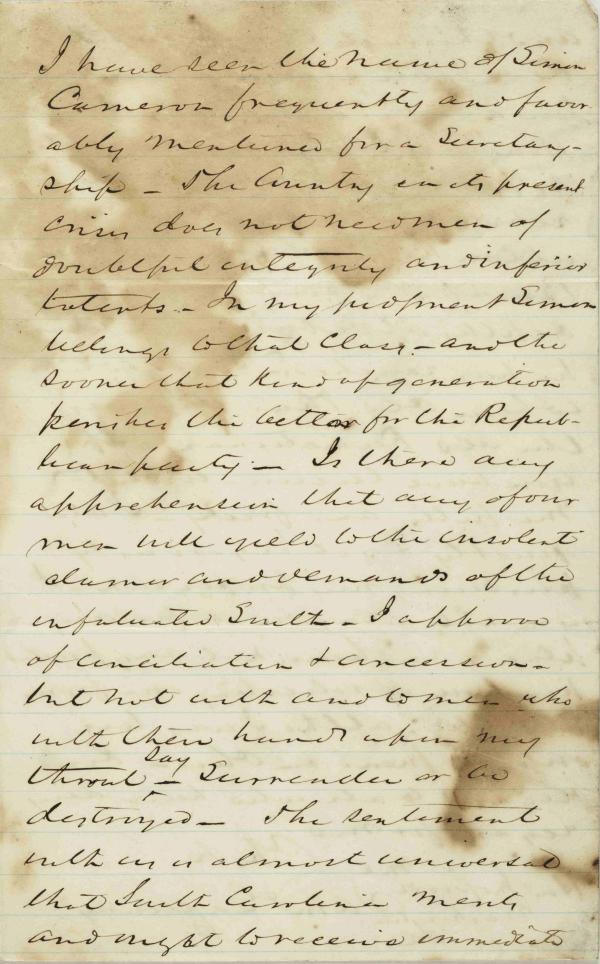 I have seen the name of Simon
Cameron frequently and favor
ably mentioned for a Secretary-
ship - The Country in its present
crisis does not need men of
doubtful integrity and inferior
talents - In my judgment Simon
belongs to that Class - and the
sooner that kind of generation
perishes the better for the Repub-
lican party - Is there any
apprehension that any of our
men will yield to the insolent
clamor and demands of the
infatuated South - I approve
of conciliation & concession -
but not with and to men who
with their hands upon my
throat say - Surrender or be
destroyed - The sentiment
with us is almost universal
that South Carolina merits
and ought to receive immediate